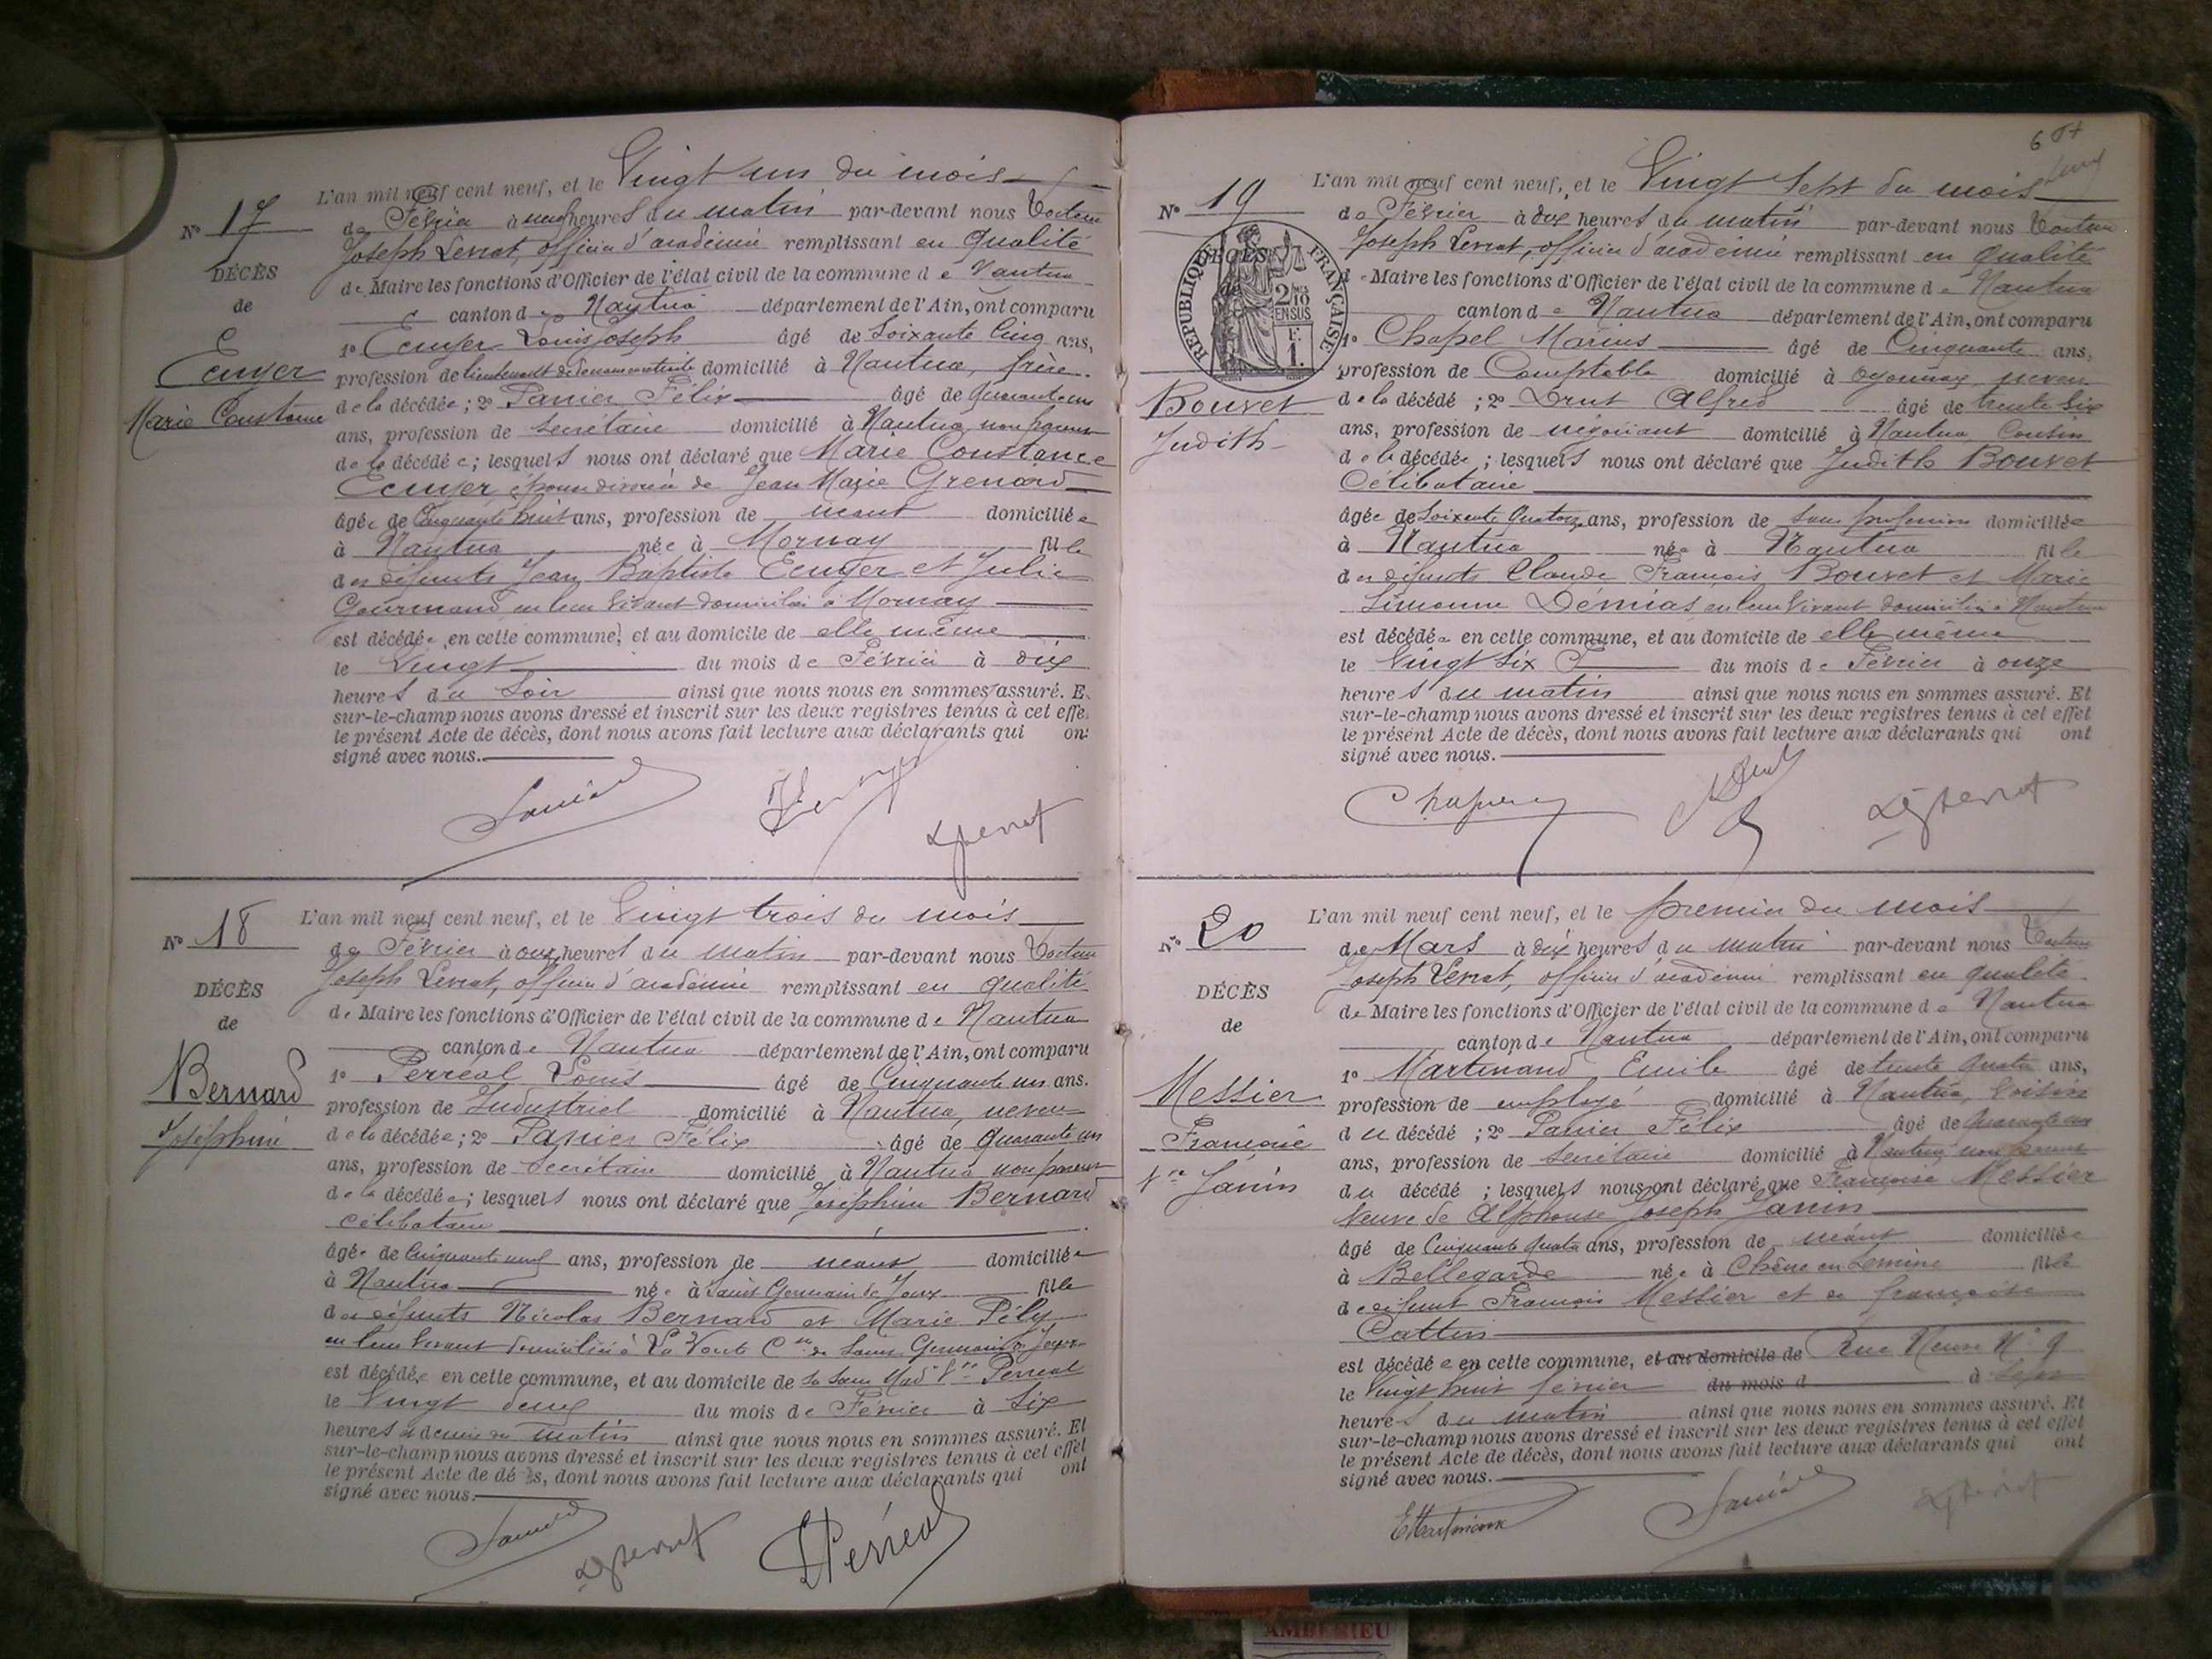 L'an mil neuf cent neuf, et le Vingt un du mois
N° 17
de Février à neuf heures du matin par-devant nous Docteur
Joseph Levrat, officier d'académie remplissant en qualité
DÉCÈS
de Maire les fonctions d'Officier de l'état civil de la commune de Nantua
de
canton de Nantua département de l'Ain, ont comparu
1° Ecuyer Louis Joseph âgé de Soixante Cinq ans,
Ecuyer
profession de lieutenant de domicilié à Nantua, frère
Marie Constance
de la décédée; 2° Panier Félix âgé de Quarante un
ans, profession de Secrétaire domicilié à Nantua non parent
de la décédée; lesquels nous ont déclaré que Marie Constance
Ecuyer épouse divorcée de Jean Marie Grenard
âgée de Cinquante huit ans, profession de néant domiciliée
à Nantua née à Mornay fille
des défunts Jean Baptiste Ecuyer et Julie
Gourmand en leur vivant domiciliés à Mornay
est décédée en cette commune, et au domicile de elle même
le Vingt du mois de Février à dix
heures du Soir ainsi que nous nous en sommes assuré. E
sur-le-champ nous avons dressé et inscrit sur les deux registres tenus à cet effe
le présent Acte de décès, dont nous avons fait lecture aux déclarants qui ont
signé avec nous.
L'an mil neuf cent neuf, et le Vingt trois du mois
N° 18
de Février à onze heures du matin par-devant nous Docteur
Joseph Levrat, officier d'académie remplissant en qualité
DÉCÈS
de Maire les fonctions d'Officier de l'état civil de la commune de Nantua
de
canton de Nantua département de l'Ain, ont comparu
1° Perréal Louis âgé de Cinquante un ans.
Bernard
profession de Industriel domicilié à Nantua, neveu
Joséphine
de la décédée; 2° Panier Félix âgé de Quarante un
ans, profession de Secrétaire domicilié à Nantua non parent
de la décédée; lesquels nous ont déclaré que Joséphine Bernard
célibataire
âgée de Cinquante neuf ans, profession de néant domiciliée
à Nantua née à Saint Germain de Joux fille
des défunts Nicolas Bernard et Marie Pély
en leur vivant domiciliés à La Voute Cne de Saint Germain de Joux
est décédée en cette commune, et au domicile de sa Sœur Mad Vve Perréal
le Vingt deux du mois de Février à Six
heures et demie du matin ainsi que nous nous en sommes assuré. Et
sur-le-champ nous avons dressé et inscrit sur les deux registres tenus à cet effet
le présent Acte de dé s, dont nous avons fait lecture aux déclarants qui ont
signé avec nous.
Perréal
6
L'an mil neuf cent neuf, et le Vingt Sept du mois
N° 19
de Février à dix heures du matin par-devant nous Docteur
Joseph Levrat, officier d'académie remplissant en qualité
RÉPUBLIQUE FRANÇAISE
2/10 EN SUS
F. 1.
DÉCÈS
de
de Maire les fonctions d'Officier de l'état civil de la commune de Nantua
canton de Nantua département de l'Ain, ont comparu
1° Chapel Marius âgé de Cinquante ans,
profession de Comptable domicilié à Oyonnax, neveu
Bouvet
de la décédé ; 2° Drut Alfred âgé de trente six
Judith
ans, profession de négociant domicilié à Nantua Cousin
de la décédée ; lesquels nous ont déclaré que Judith Bouvet
Célibataire
âgée de Soixante Quatorze ans, profession de Sans profession domiciliée
à Nantua née à Nantua fille
des défunts Claude François Bouvet et Marie
Simonne Démias en leur vivant domiciliés à Nantua
est décédée en cette commune, et au domicile de elle même
le Vingt Six du mois de Février à onze
heures du matin ainsi que nous nous en sommes assuré. Et
sur-le-champ nous avons dressé et inscrit sur les deux registres tenus à cet effet
le présent Acte de décès, dont nous avons fait lecture aux déclarants qui ont
signé avec nous.
L'an mil neuf cent neuf, et le premier du mois
N° 20
de Mars à dix heures du matin par-devant nous Docteur
Joseph Levrat, officier d'académie remplissant en qualité
DÉCÈS
de Maire les fonctions d'Officier de l'état civil de la commune de Nantua
de
canton de Nantua département de l'Ain, ont comparu
1° Martinand Emile âgé de trente quatre ans,
Messier
profession de employé domicilié à Nantua, Voisin
Françoise
du décédé ; 2° Panier Félix âgé de Quarante un
ans, profession de Secrétaire domicilié à Nantua non parent
Vve Janin
du décédé ; lesquels nous ont déclaré que Françoise Messier
Veuve de Alphonse Joseph Janin
âgé de Cinquante quatre ans, profession de néant domiciliée
à Bellegarde née à Chêne en Semine fille
de défunt François Messier et de françoise
Cattin
est décédée en cette commune, et au domicile de Rue Neuve N° 9
le Vingt huit février du mois d à Sept
heures du matin ainsi que nous nous en sommes assuré. Et
sur-le-champ nous avons dressé et inscrit sur les deux registres tenus à cet effet
le présent Acte de décès, dont nous avons fait lecture aux déclarants qui ont
signé avec nous.
AMBERIEU